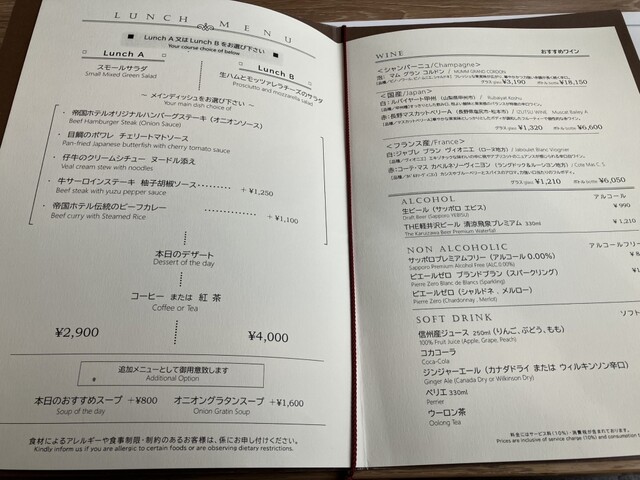 LUNCH MENU
Lunch A 又は Lunch B をお選び下さい
Your course choice of below
Lunch A
スモールサラダ
Small Mixed Green Salad
Lunch B
生ハムとモッツァレラチーズのサラダ
Prosciutto and mozzarella salad
～ メインディッシュをお選び下さい ～
Your main dish choice of
・ 帝国ホテルオリジナルハンバーグステーキ（オニオンソース）
Beef Hamburger Steak (Onion Sauce)
・ 目鯛のポワレ チェリートマトソース
Pan-fried Japanese butterfish with cherry tomato sauce
・ 仔牛のクリームシチュー ヌードル添え
Veal cream stew with noodles
・ 牛サーロインステーキ 柚子胡椒ソース ……… + ¥1,250
Beef steak with yuzu pepper sauce
・ 帝国ホテル伝統のビーフカレー ……… + ¥1,100
Beef curry with Steamed Rice
本日のデザート
Dessert of the day
コーヒー または 紅 茶
Coffee or Tea
¥2,900
¥4,000
追加メニューとして御用意致します
Additional Option
本日のおすすめスープ +¥800
Soup of the day
オニオングラタンスープ +¥1,600
Onion Gratin Soup
食材によるアレルギーや食事制限・制約のあるお客様は、係にお申し付けください。
Kindly inform us if you are allergic to certain foods or are observing dietary restrictions.
WINE おすすめワイン
＜シャンパーニュ/Champagne＞
泡: マム グラン コルドン / MUMM GRAND CORDON
グラス glass ¥3,190 ボトル bottle ¥18,150
＜国産/Japan＞
白: ルバイヤート甲州（山梨県 勝沼町） / Rubaiyat Koshu
赤: 長野マスカットベリーA
グラス glass ¥1,320 ボトル bottle ¥6,600
＜フランス産/France＞
白: ジャブレ ブラン ヴィオニエ（ローヌ地方） / Jaboulet Blanc Viognier
赤: コーテ・マス カベルネソーヴィニヨン（ラングドック&ルーション地方） / Cote Mas C.S
グラス glass ¥1,210 ボトル bottle ¥6,050
ALCOHOL アルコール
生ビール（サッポロ エビス） ¥990
Draft Beer (Sapporo YEBISU)
THE軽井沢ビール 清涼飛泉プレミアム 330ml ¥1,
The Karuizawa Beer Premium Waterfall
NON ALCOHOLIC アルコールフリー
サッポロプレミアムフリー（アルコール 0.00%）
Sapporo Premium Alcohol Free (ALC.0.00%)
ピエールゼロ ブランドブラン（スパークリング）
Pierre Zero Blanc de Blancs (Sparkling)
ピエールゼロ（シャルドネ 、メルロー）
Pierre Zero (Chardonnay , Merlot)
SOFT DRINK ソフト
信州産ジュース 250ml（りんご、ぶどう、もも）
100% Fruit Juice (Apple, Grape, Peach)
コカコーラ
Coca-Cola
ジンジャーエール（カナダドライ または ウィルキンソン辛口）
Ginger Ale (Canada Dry or Wilkinson Dry)
ペリエ 330ml
Perrier
ウーロン茶
Oolong Tea
料金にはサービス料（10%）・消費税が含まれております。
Prices are inclusive of service charge (10%) and consumption